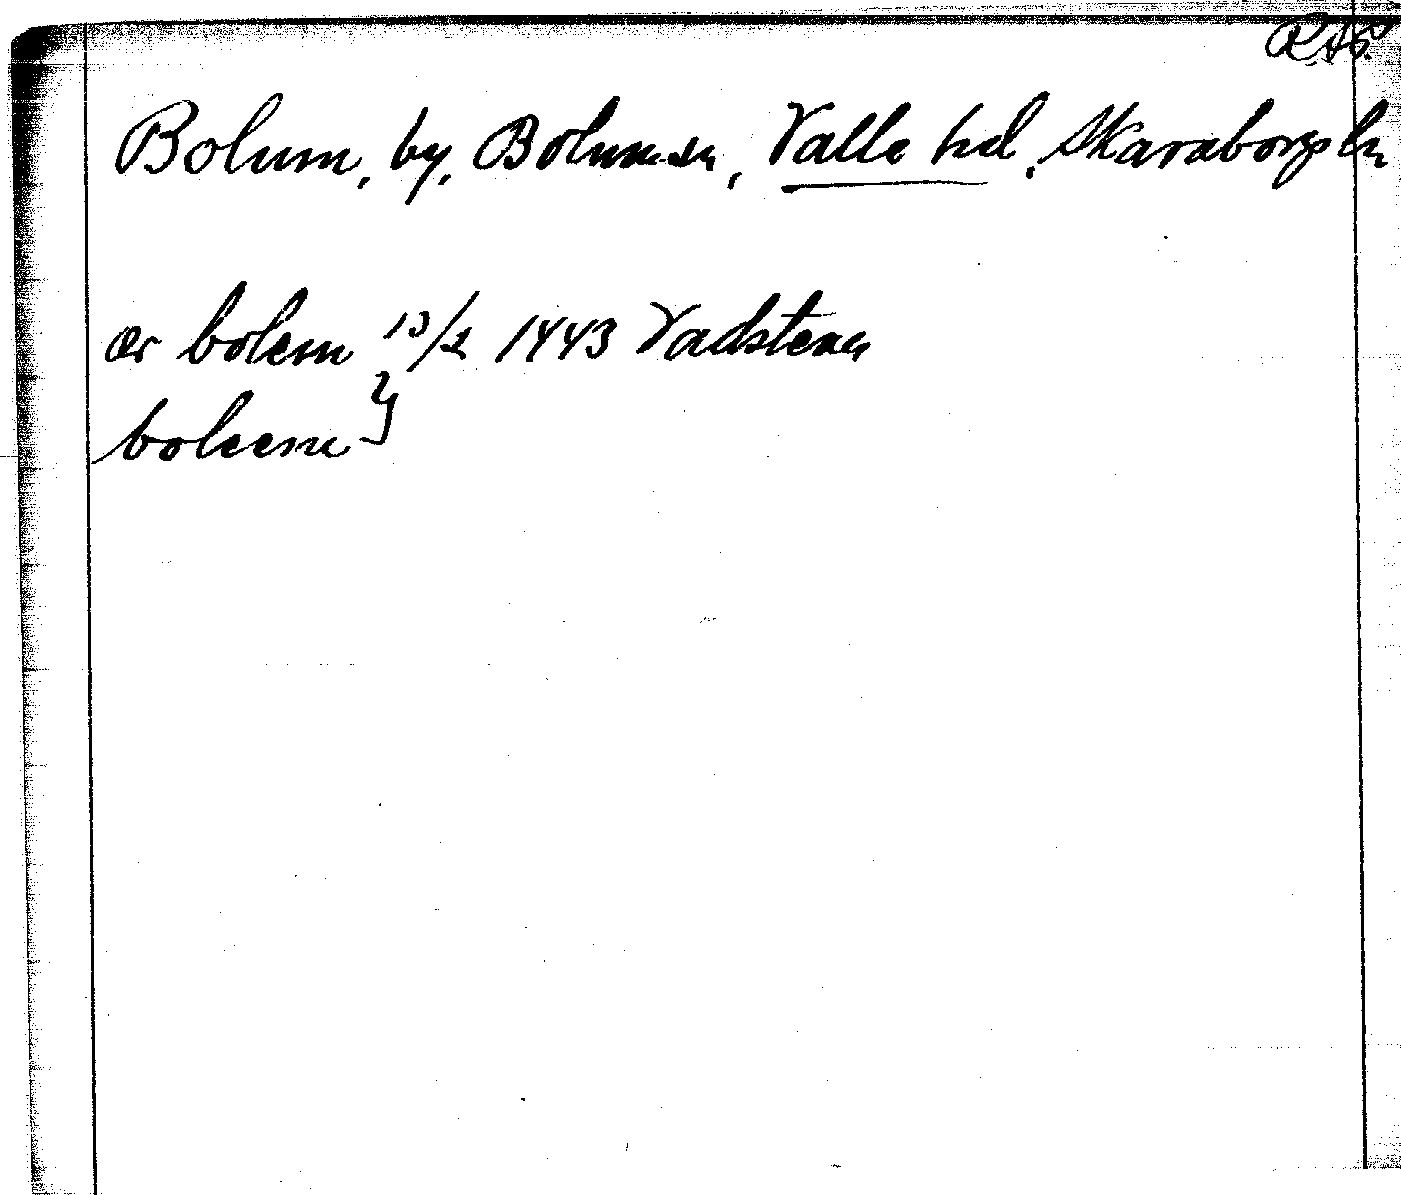 R.A.P.
Bolum, by, Bolums sn, Valle hd, Skaraborgs ln
ær bolem 13/2 1443 Vadstena
boleem }